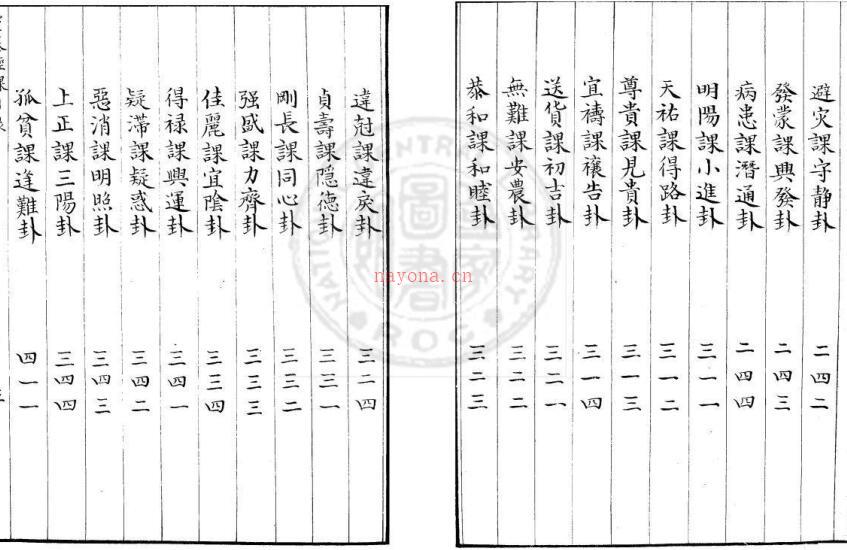 避灾課守静卦 二四二
發蒙課興發卦 二四三
病患課潛通卦 二四四
明陽課小進卦 三一一
天祐課得路卦 三一二
尊貴課見貴卦 三一三
宜禱課禳告卦 三一四
送貨課初吉卦 三二一
無難課安農卦 三二二
恭和課和睦卦 三二三
違冠課違戾卦 三二四
貞壽課隱德卦 三三一
剛長課同心卦 三三二
强盛課力齊卦 三三三
佳麗課宜陰卦 三三四
得禄課興運卦 三四一
疑滯課疑惑卦 三四二
惡消課明照卦 三四三
上正課三陽卦 三四四
孤貧課逢難卦 四一一
nayona.cn